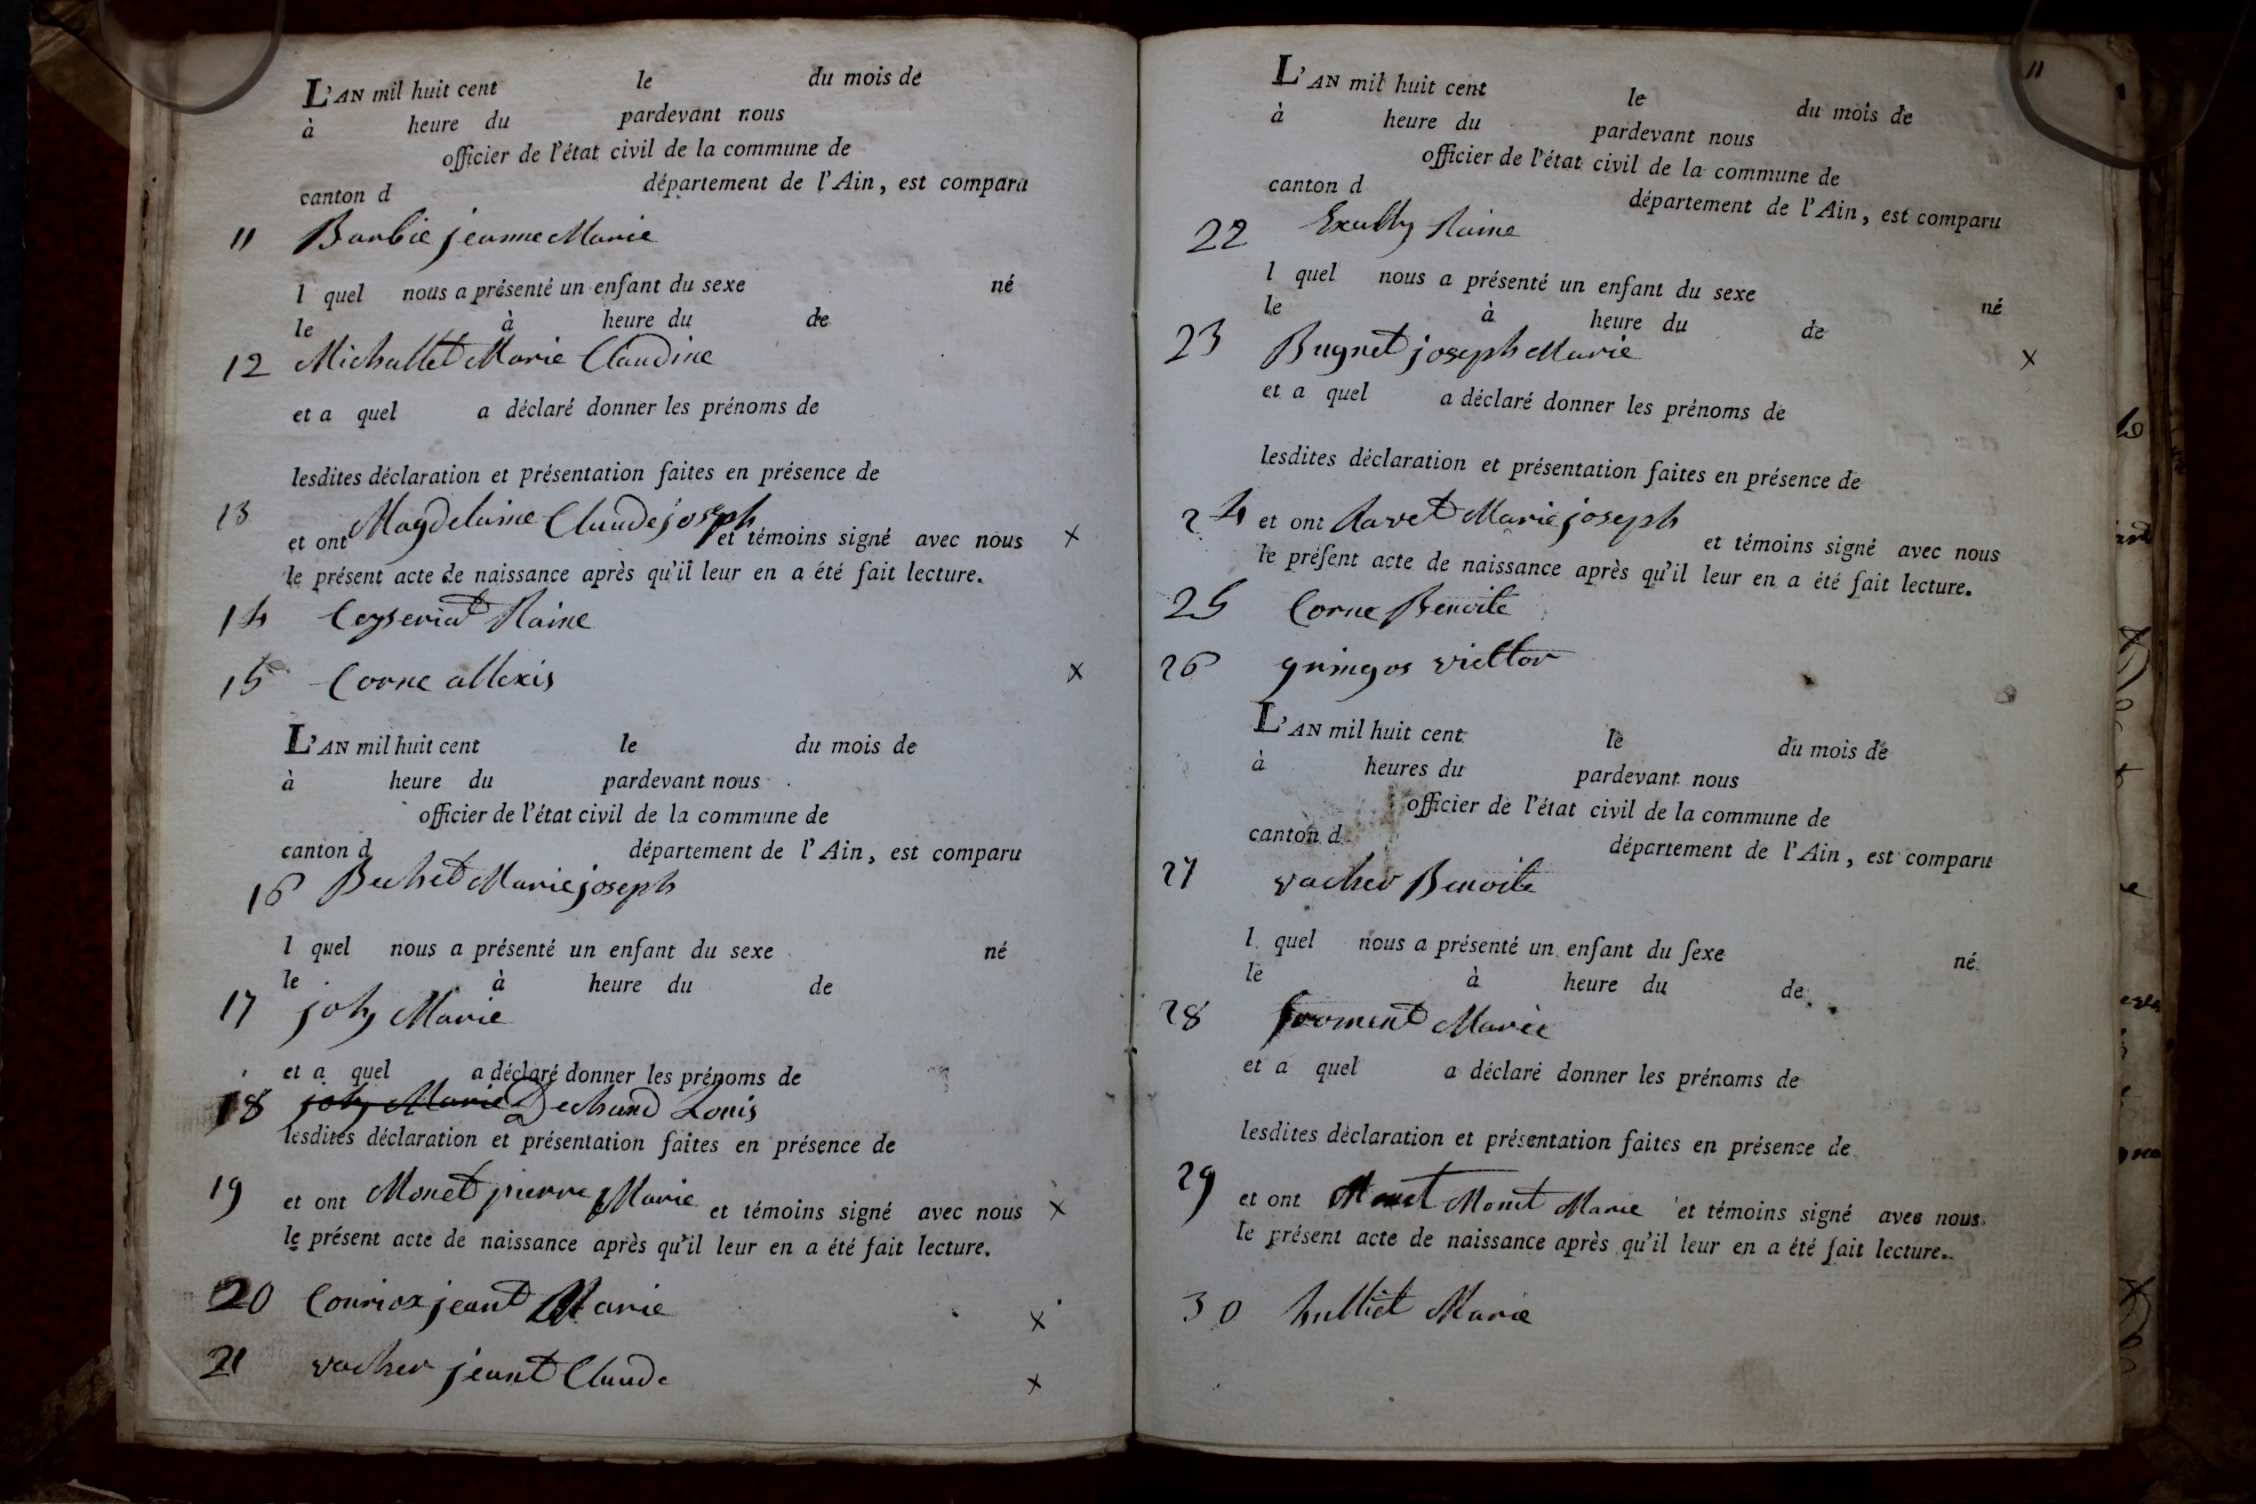 L'AN mil huit cent le du mois de
à heure du pardevant nous
officier de l'état civil de la commune de
canton d département de l'Ain, est comparu
11 Barbié jeanne Marie
l quel nous a présenté un enfant du sexe né
le à heure du de
12 Michallet Marie Claudine
et a quel a déclaré donner les prénoms de
lesdites déclaration et présentation faites en présence de
13 Magdelaine Claude joseph
et ont et témoins signé avec nous x
le présent acte de naissance après qu'il leur en a été fait lecture.
14 Ceyseriat Raine
15 Corne allexis x
L'AN mil huit cent le du mois de
à heure du pardevant nous
officier de l'état civil de la commune de
canton d département de l'Ain, est comparu
16 Bechet Marie joseph
l quel nous a présenté un enfant du sexe né
le à heure du de
17 joly Marie
et a quel a déclaré donner les prénoms de
18 joly Marie Dechand Louis
lesdites déclaration et présentation faites en présence de
19 et ont Monet pierre Marie et témoins signé avec nous x
le présent acte de naissance après qu'il leur en a été fait lecture.
20 Couriox jeant Marie x
21 vacher jeant Claude x
11
L'AN mil huit cent le du mois de
à heure du pardevant nous
officier de l'état civil de la commune de
canton d département de l'Ain, est comparu
22 Raine
l quel nous a présenté un enfant du sexe né
le à heure du de
23 Bugnet joseph Marie x
et a quel a déclaré donner les prénoms de
lesdites déclaration et présentation faites en présence de
24 et ont Ravet Marie joseph et témoins signé avec nous
le préſent acte de naissance après qu'il leur en a été fait lecture.
25 Corne Benoite
26 gringos victtor
L'AN mil huit cent le du mois de
à heures du pardevant nous
officier de l'état civil de la commune de
canton d département de l'Ain, est comparu
27 vacher Benoite
l quel nous a présenté un enfant du ſexe né
le à heure du de
28 froment Marie
et a quel a déclaré donner les prénoms de
lesdites déclaration et présentation faites en présence de
29 et ont Monet Marie et témoins signé avec nous
le présent acte de naissance après qu'il leur en a été fait lecture.
30 hulliet Marie